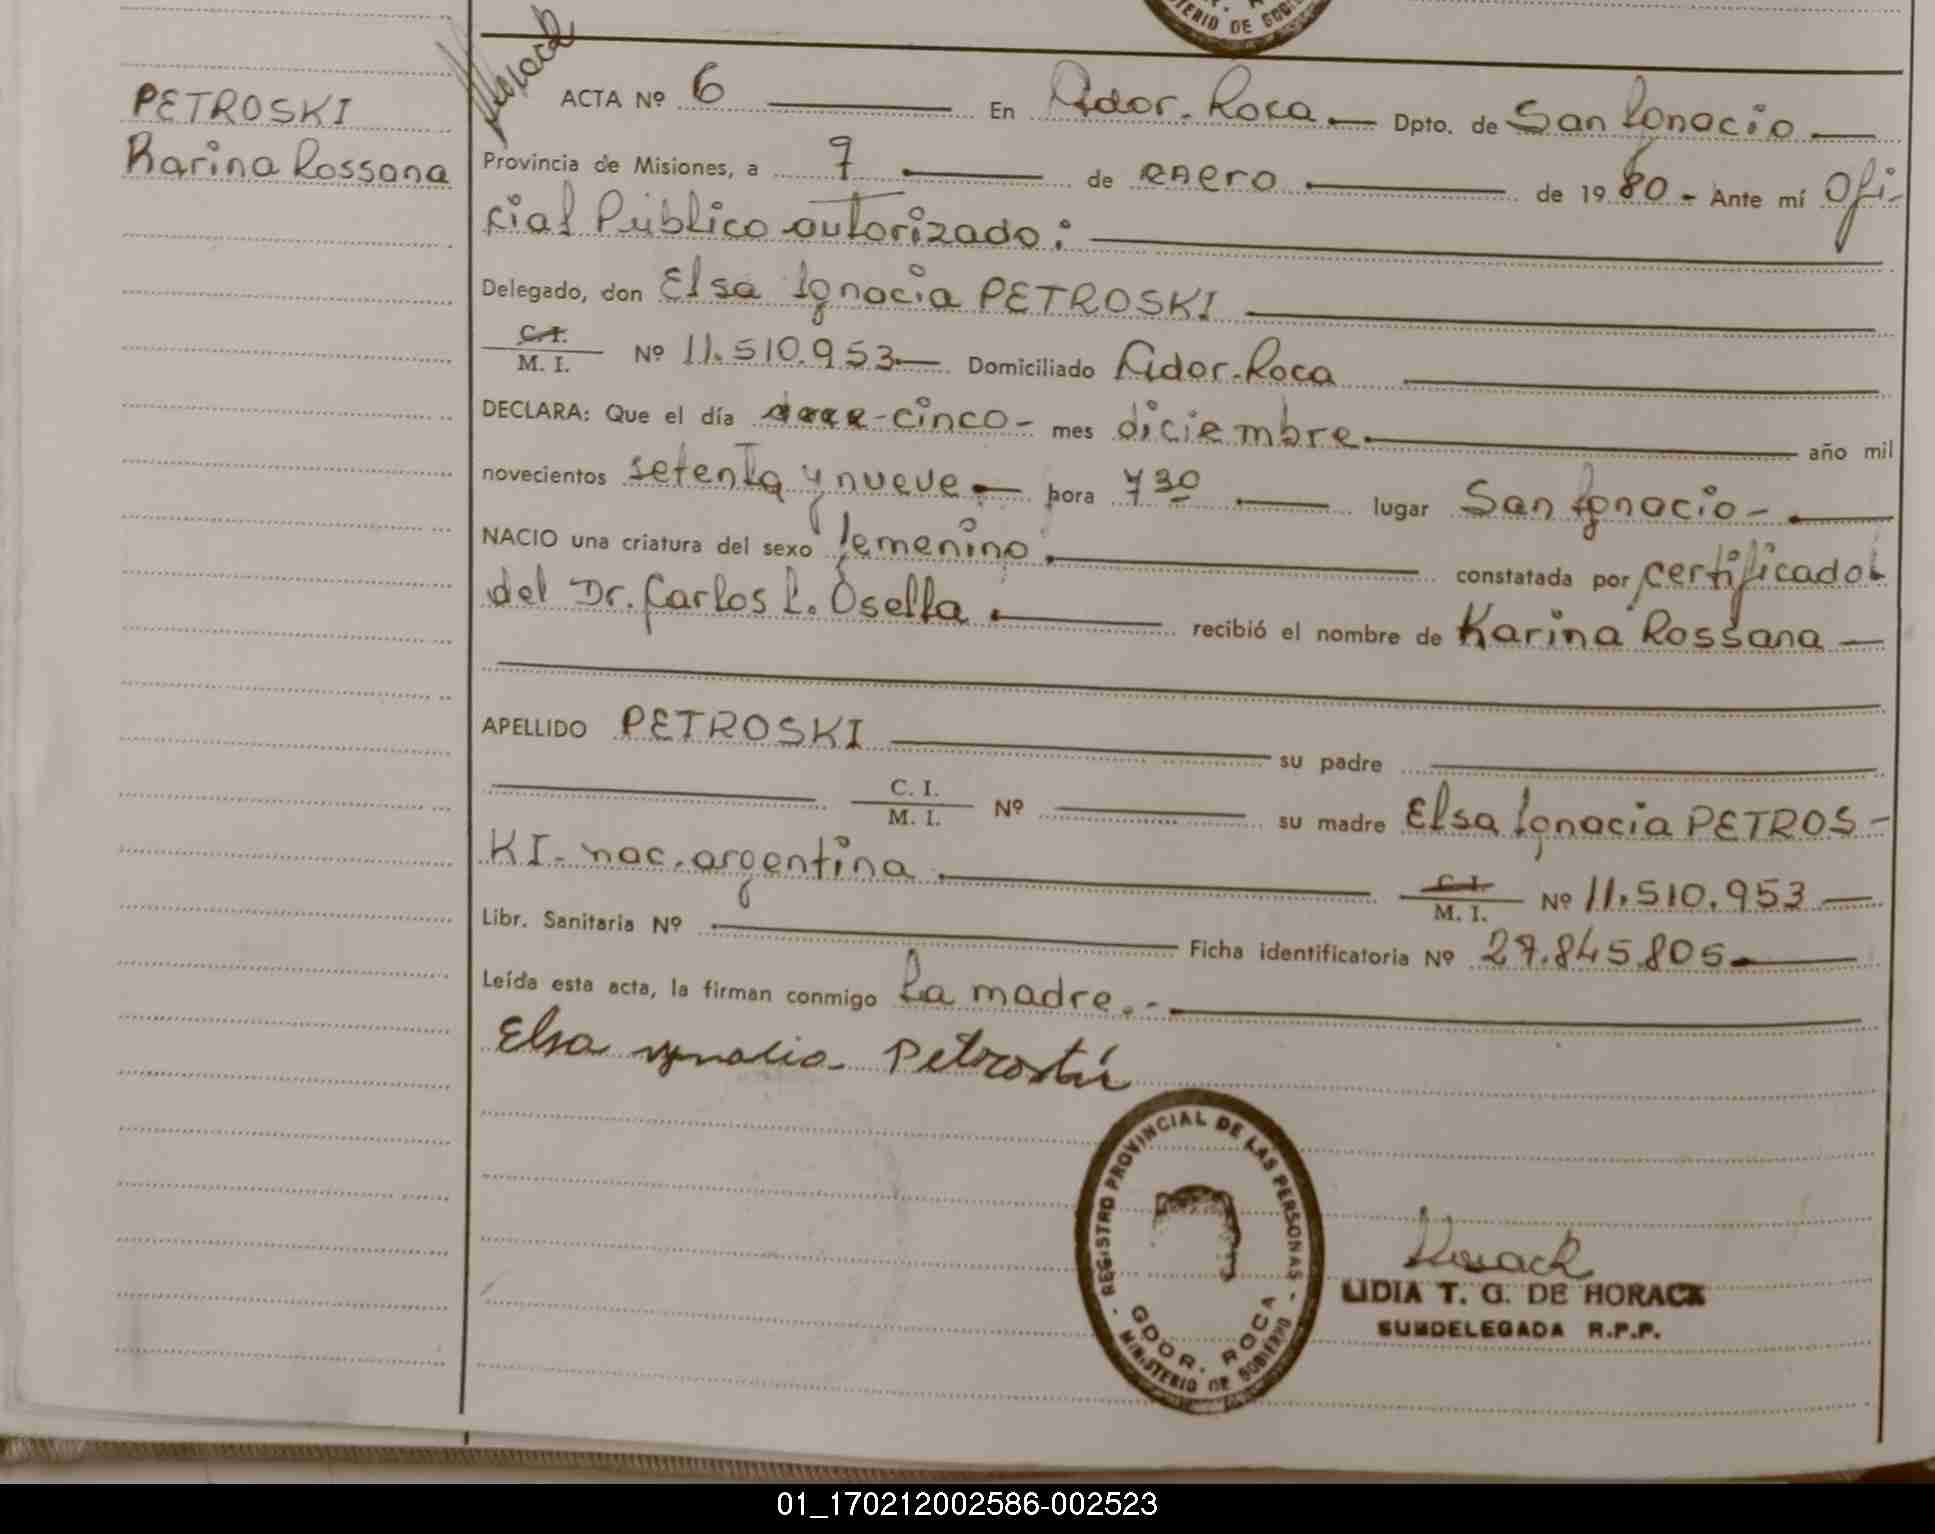 TERIO DE GOBI
Horack
PETROSKI
Karina Rossana
ACTA Nº 6 En Gdor. Roca Dpto. de San Ignacio
Provincia de Misiones, a 7 de enero de 1980 - Ante mí Ofi-
cial Público autorizado:
Delegado, don Elsa Ignacia PETROSKI
C. I.
M. I. Nº 11.510.953 Domiciliado Gdor. Roca
DECLARA: Que el día -cinco- mes diciembre año mil
novecientos setenta y nueve hora 7 30 lugar San Ignacio-
NACIO una criatura del sexo femenino constatada por certificado
del Dr. Carlos L. Osella recibió el nombre de Karina Rossana
APELLIDO PETROSKI su padre
C. I.
M. I. Nº su madre Elsa Ignacia PETROS-
KI- nac. argentina
C. I.
M. I. Nº 11.510.953
Libr. Sanitaria Nº Ficha identificatoria Nº 27.845.805
Leída esta acta, la firman conmigo La madre.-
Elsa Ygnacia Petroski
- REGISTRO PROVINCIAL DE LAS PERSONAS -
GDOR. ROCA
MINISTERIO DE GOBIERNO
Horack
LIDIA T. G. DE HORACK
SUBDELEGADA R.P.P.
01_170212002586-002523